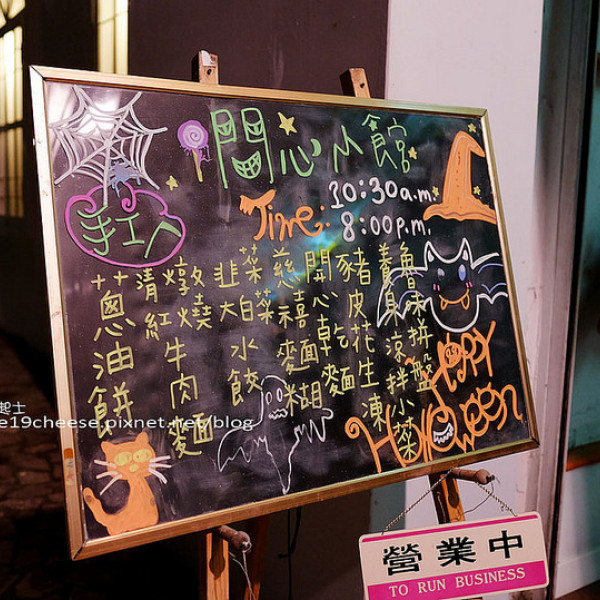 開心小館
Time: 10:30a.m.
8:00p.m.
手工ㄟ
魯味拼盤
養身涼拌小菜
豬皮花生凍
開心乾麵
慈禧麵糊
韭菜
大白菜
水餃
清燉
紅燒
牛肉麵
蔥油餅
HAPPY
Halloween
營業中
TO RUN BUSINESS
起士
e19cheese.pixnet.net/blog